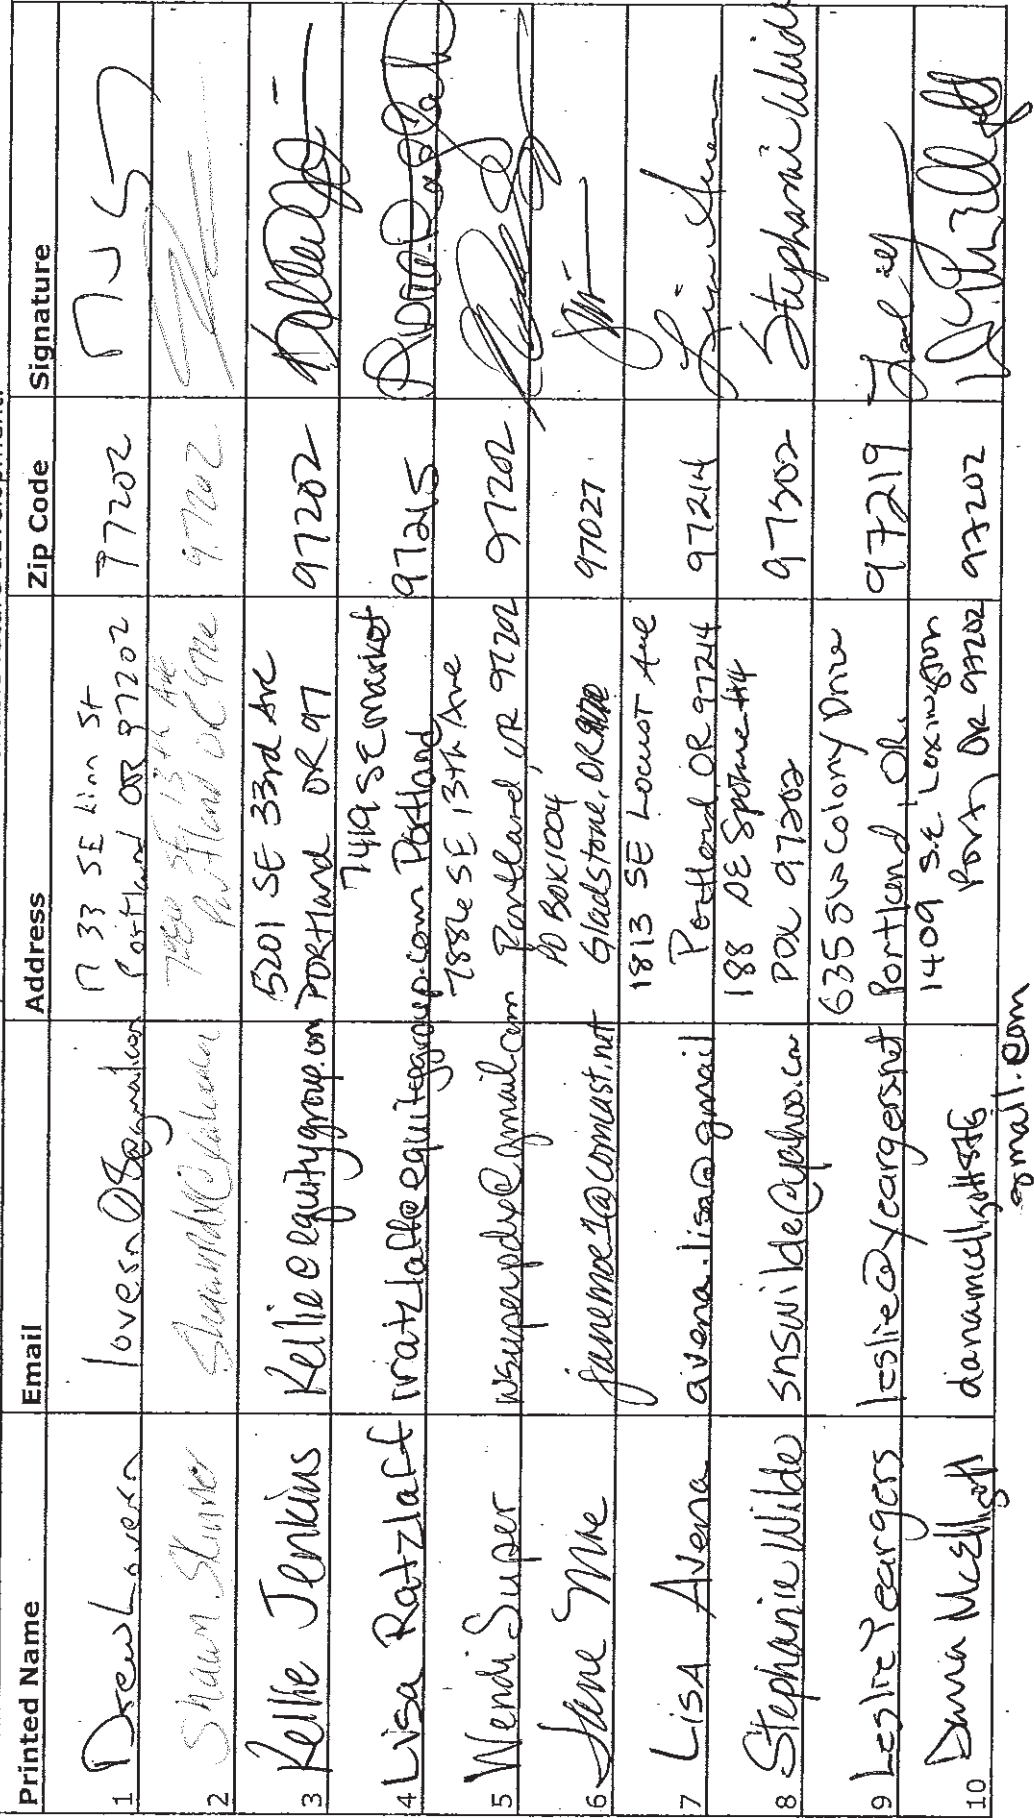 Printed Name Email Address Zip Code Signature
1 Drew Lovern lovern08@gmail.com 1733 SE Linn St
Portland OR 97202 97202
2 Shawn Skinner 13th Ave
Portland OR 97202
3 Kellie Jenkins Kellie@equitygroup.com 5201 SE 33rd Ave
Portland OR 97 97202
4 Lisa Ratzlaff lratzlaff@equitygroup.com 7419 SE Market
Portland 97215
5 Wendi Super wsuperpdx@gmail.com 7886 SE 13th Ave
Portland, OR 97202 97202
6 Jane Moe janemoe1@comcast.net PO Box 1004
Gladstone, OR 97027
7 Lisa Avena avena.lisa@gmail 1813 SE Locust Ave
Portland OR 97214 97214
8 Stephanie Wilde snswilde@yahoo.com 188 #4
PDX 97202 Stephanie Wilde
9 Leslie Yeargers leslie@yeargers.net 635 SW Colony Drive
Portland, OR. 97219
10 Dana McElligott 1409 S.E. Lexington
Port, OR 97202 97202
gmail.com